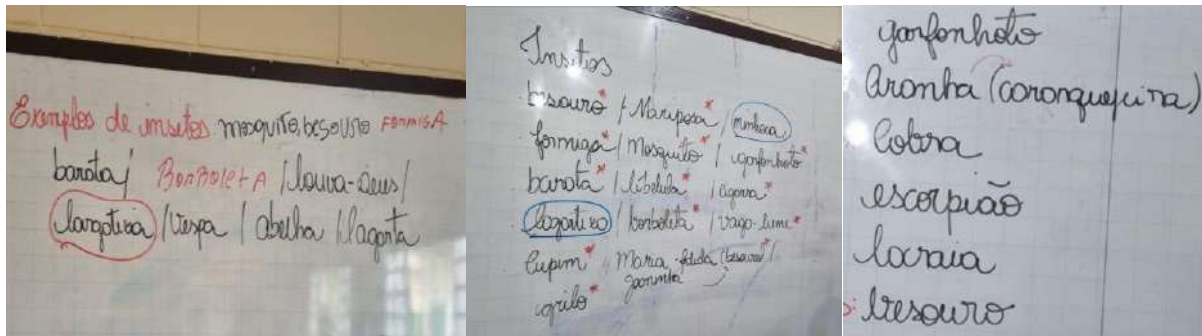 Exemplos de insetos mosquito, besouro FORMIGA
barata/ BORBOLETA /louva-deus/
largotixa /vespa / abelha /lagarta
Insetos
besouro* / Mariposa* / minhoca
formiga* / Mosquito* / gafanhoto*
barata* / libelula* / cigarra*
lagartixa / borboleta* / vaga-lume*
Cupim* Maria-fedida (besouro)* /
joaninha
grilo*
gafonhoto
Aranha (caranguejeira)
Cobra
escorpião
lacraia
besouro